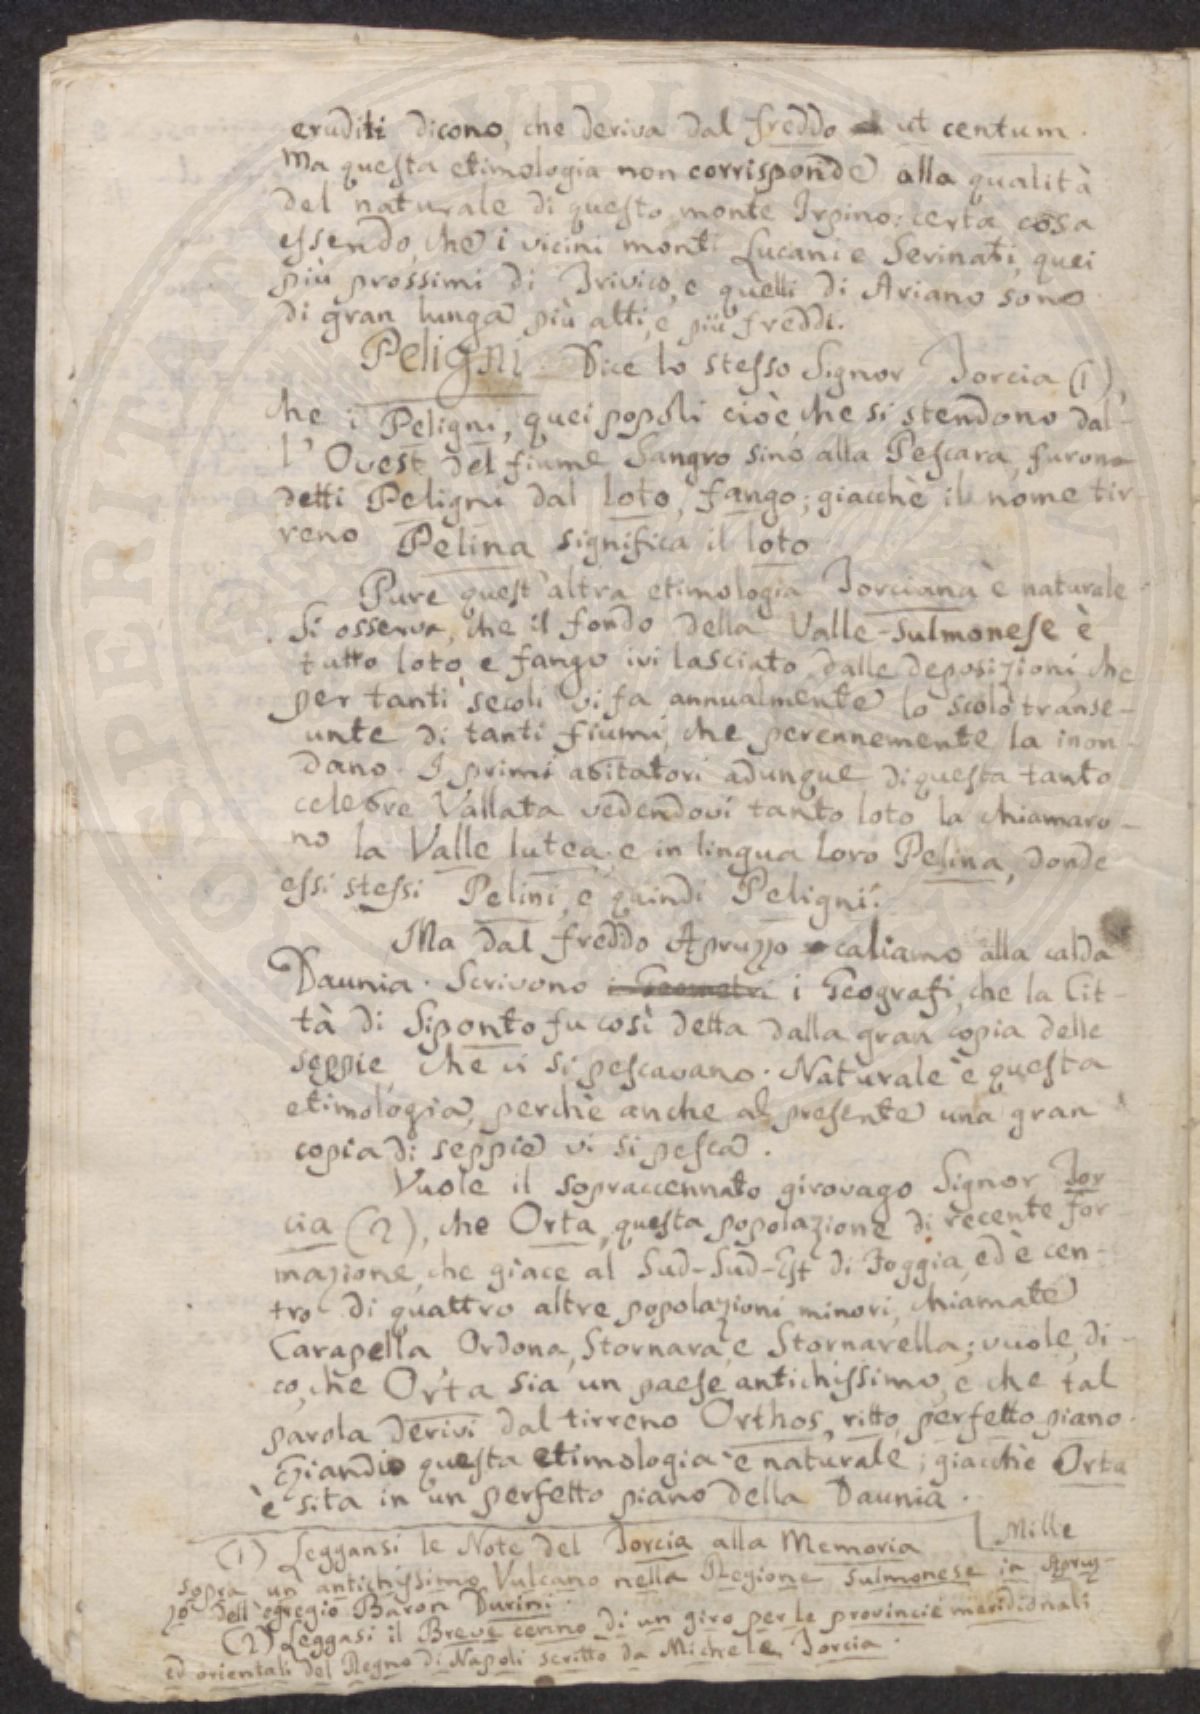 eruditi dicono, che deriva dal freddo ut centum.
Ma questa etimologia non corrisponde alla qualità
del naturale di questo monte Irpino: certa cosa
essendo, che i vicini monti Lucani e Serinati, quei
più prossimi di Trivico, e quelli di Ariano sono
di gran lunga più alti, e più freddi.
Peligni. Dice lo stesso Signor Torcia (1),
che i Peligni, quei popoli cioè che si stendono dal-
l'Ovest del fiume Sangro sino alla Pescara, furono
detti Peligni dal loto, fango; giacchè il nome tir-
reno Pelina significa il loto.
Pure quest'altra etimologia Torciana è naturale.
Si osserva, che il fondo della Valle-Sulmonese è
tutto loto, e fango ivi lasciato dalle deposizioni, che
per tanti secoli vi fa annualmente lo scolo transe-
unte di tanti fiumi, che perennemente la inon-
dano. I primi abitatori adunque di questa tanto
celebre Vallata vedendovi tanto loto la chiamaro-
no la Valle lutea, e in lingua loro Pelina, donde
essi stessi Pelini, e quindi Peligni.
Ma dal freddo Apruzzo caliamo alla calda
Daunia. Scrivono i Geometri i Geografi, che la Cit-
tà di Siponto fu così detta dalla gran copia delle
seppie, che vi si pescavano. Naturale è questa
etimologia, perchè anche al presente una gran
copia di seppie vi si pesca.
Vuole il sopraccennato girovago Signor Tor-
cia (2), che Orta, questa popolazione di recente for-
mazione, che giace al Sud-Sud-Est di Foggia, ed è cen-
tro di quattro altre popolazioni minori, chiamate
Carapella, Ordona, Stornara, e Stornarella; vuole, di-
co, che Orta sia un paese antichissimo, e che tal
parola derivi dal tirreno Orthos, ritto, perfetto piano.
Eziandio questa etimologia è naturale; giacchè Orta
è sita in un perfetto piano della Daunia.
Mille
(1) Leggansi le Note del Torcia alla Memoria
sopra un antichissimo Vulcano nella Regione Sulmonese in Apruz-
zo dell'egregio Baron Durini.
(2) Leggasi il Breve cenno di un giro per le provincie meridionali
ed orientali del Regno di Napoli scritto da Michele Torcia.